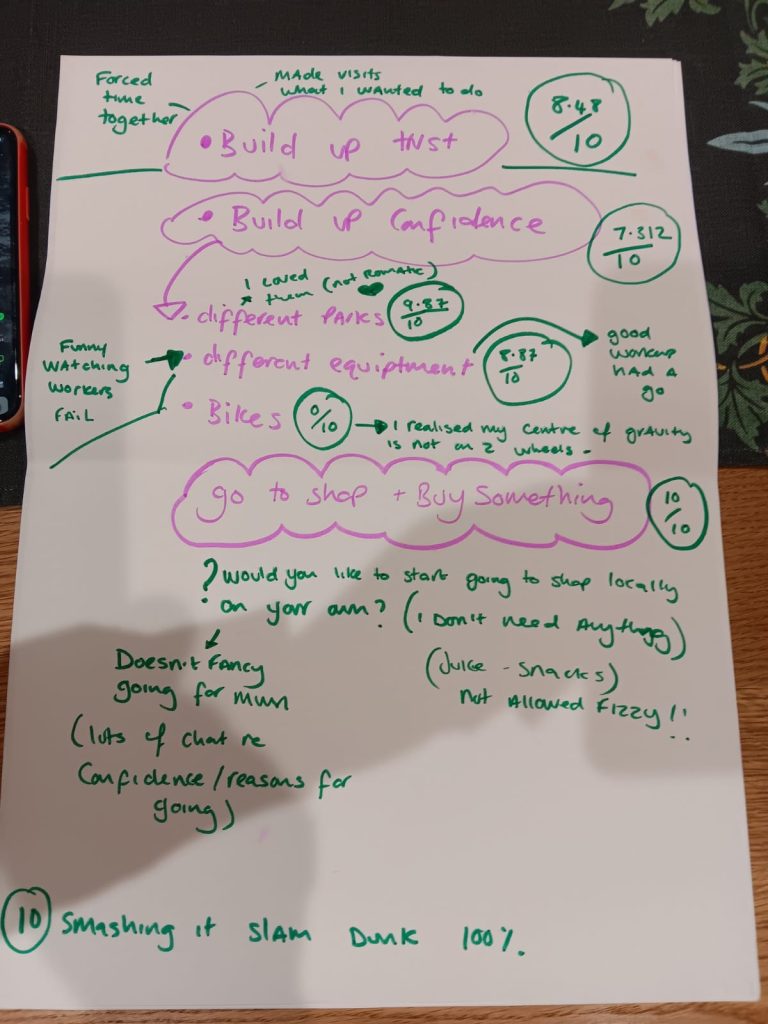 Forced
time
together
MADE VISITS
what I wanted to do
8.48
/10
• Build up trust
• Build up Confidence
7.312
/10
I loved
them (not Romatic)
• different Parks
9.87
/10
• different equiptment
8.87
/10
good
workers
HAD A
go
Funny
WATCHING
Workers
FAIL
• Bikes
0/10
I realised my centre of gravity
is not on 2 wheels.
go to shop + Buy Something
10
/10
? Would you like to start going to shop locally
on your own? (I Don't need Anything)
Doesn't Fancy
going for mum
(Juice - Snacks)
Not Allowed Fizzy!!
(lots of chat re
Confidence/reasons for
going)
10 Smashing it Slam Dunk 100%.